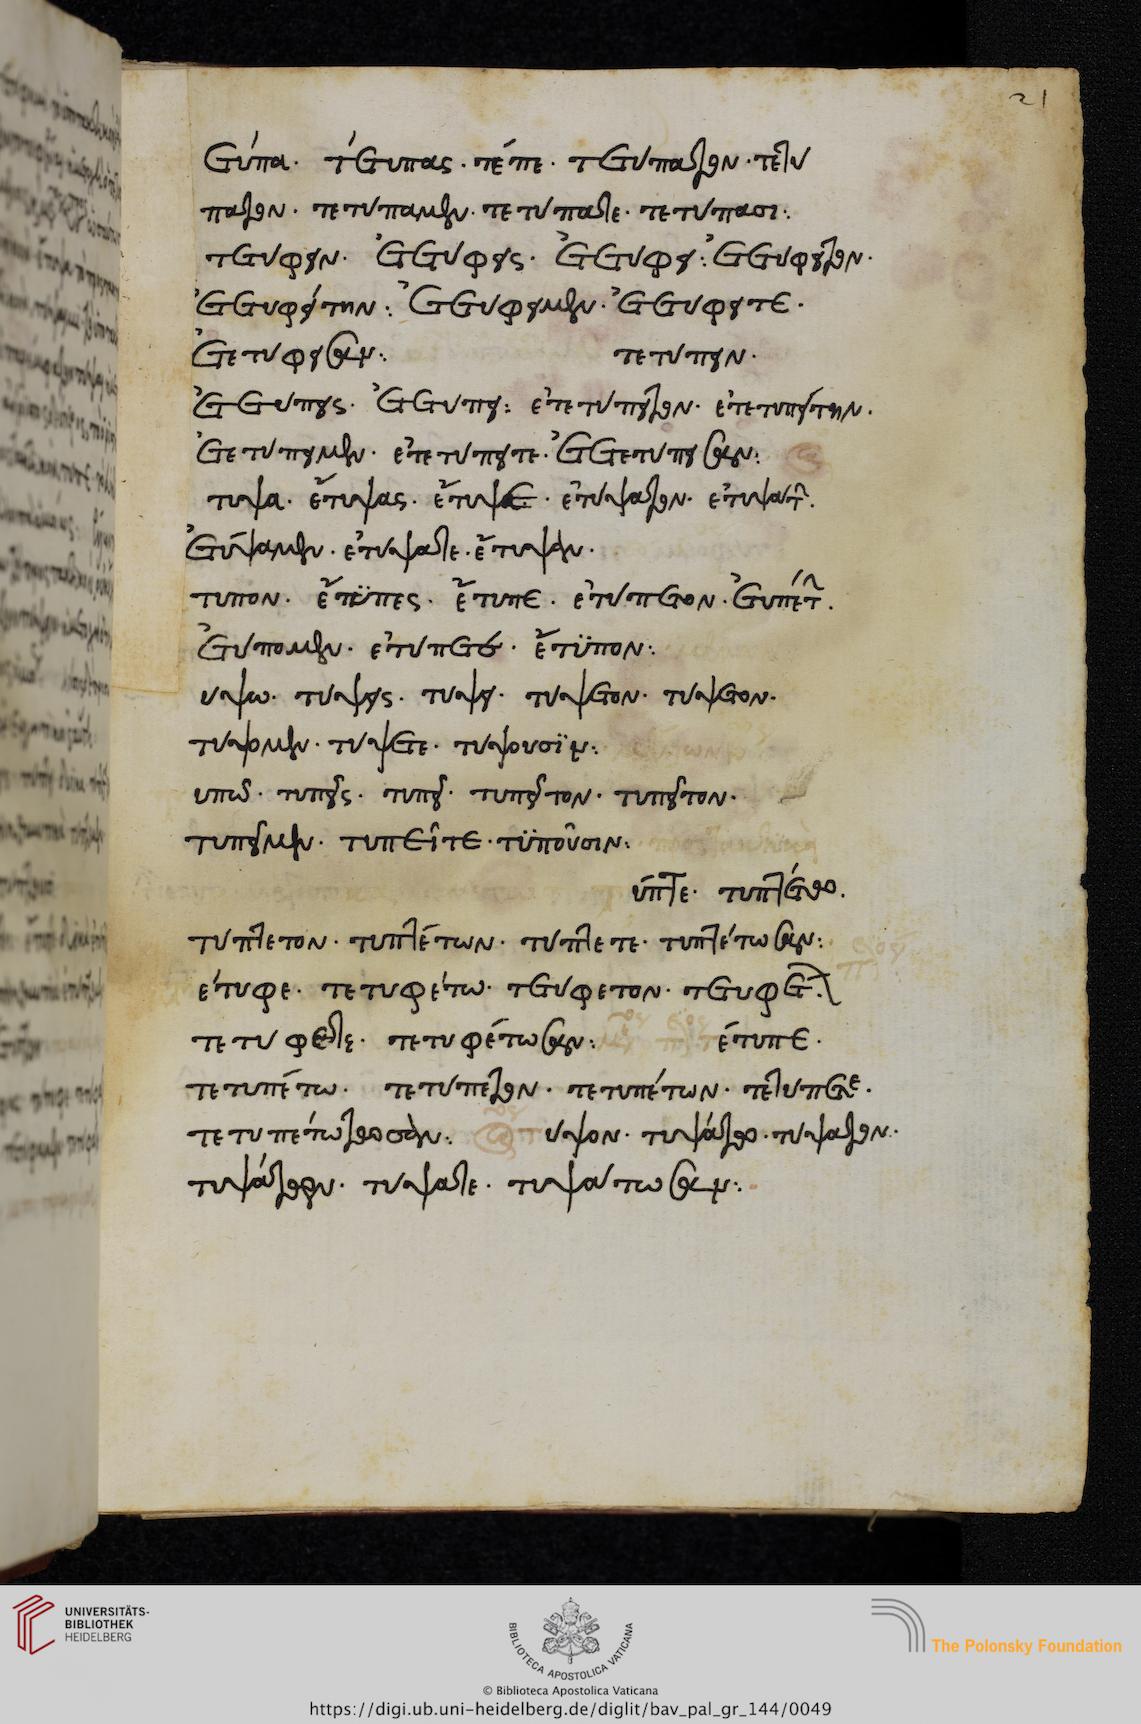 21
ετύπα· τέτυπας· τέτυπε· τετύπατον· τετύ
πατον· τετύπαμεν· τετύπατε· τετύπασι:
τετύφειν· ἐτετύφεις· ἐτετύφει: ἐτετύφειτον·
ἐτετυφείτην: ἐτετύφειμεν· ἐτετύφειτε·
ἐτετύφεισαν: τετύπειν·
ἐτετύπεις· ἐτετύπει: ἐτετύπειτον· ἐτετυπείτην·
ἐτετύπειμεν· ἐτετύπειτε· ἐτετύπεισαν:
τυψα· ἔτυψας· ἔτυψε· ἐτύψατον· ἐτυψάτην·
ἐτύψαμεν· ἐτύψατε· ἔτυψαν·
τυπον· ἔτϋπες· ἔτυπε· ἐτύπετον· ἐτυπέτην·
ἐτύπομεν· ἐτύπετε· ἔτϋπον:
υψω· τύψεις· τύψει· τύψετον· τύψετον·
τύψομεν· τύψετε· τύψουσϊν:
υπῶ· τυπεῖς· τυπεῖ· τυπεῖτον· τυπεῖτον·
τυποῦμεν· τυπεῖτε· τϋποῦσιν:
ύπτε· τυπτέτω·
τύπτετον· τυπτέτων· τύπτετε· τυπτέτωσαν:
έτυφε· τετυφέτω· τετύφετον· τετυφέτων·
τετύφετε· τετυφέτωσαν: έτυπε·
τετυπέτω· τετύπετον· τετυπέτων· τετύπετε·
τετυπέτωσαν: υψον· τυψάτω· τύψατον·
τυψάτων· τύψατε· τυψάτωσαν:
UNIVERSITÄTS-
BIBLIOTHEK
HEIDELBERG
BIBLIOTECA APOSTOLICA VATICANA
The Polonsky Foundation
© Biblioteca Apostolica Vaticana
https://digi.ub.uni-heidelberg.de/diglit/bav_pal_gr_144/0049